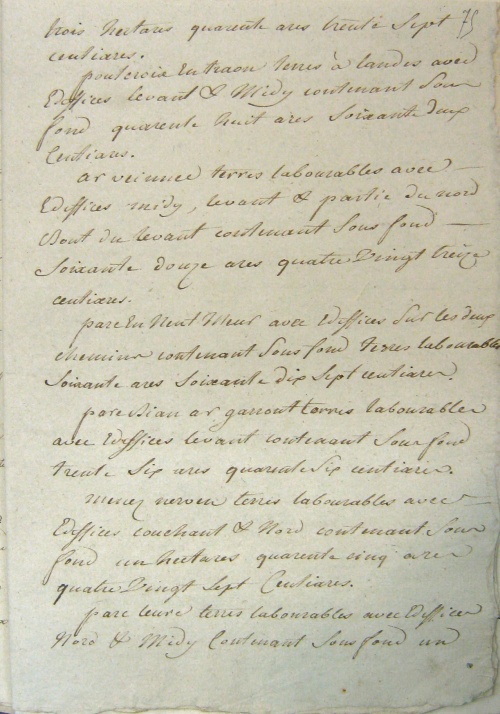 75
trois hectares quarente ares trente Sept
centiares.
poulcroix Entraon terres à landes avec
Ediffices levant & Midy contenant Sous
fond quarente huit ares Soixante deux
Centiares.
ar veinnec terres labourables avec
Ediffices midy, levant & partie du nord
Bout du levant contenant Sous fond
Soixante douze ares quatre Vingt treize
centiares.
parc En Nent Meur avec Ediffices Sur les deux
chemins contenant Sous fond terres labourables
Soixante ares Soixante dix Sept centiares.
parc Bian ar garront terres labourables
avec Ediffices levant contenant Sous fond
trente Six ares quarente Six centiares.
menez nerven terres labourables avec
Ediffices couchant & Nord contenant Sous
fond un hectares quarente cinq ares
quatre Vingt Sept Centiares.
parc leure terres labourables avec Ediffices
Nord & Midy Contenant Sous fond un